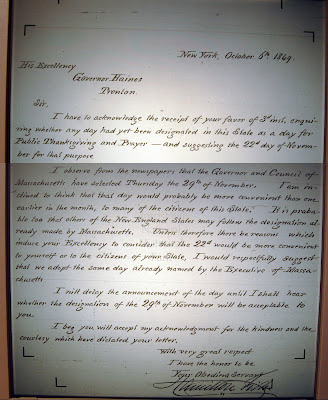 New York, October 6th 1849.
His Excellency
Governor Haines
Trenton.
Sir,
I have to acknowledge the receipt of your favor of 3d inst, enqui-
ring whether any day had yet been designated in this State as a day for
Public Thanksgiving and Prayer — and suggesting the 22d day of Novem-
ber for that purpose
I observe from the newspapers that the Governor and Council of
Massachusetts have selected Thursday the 29th of November. I am in-
clined to think that that day would probably be more convenient than one
earlier in the month, to many of the citizens of this State. It is proba-
ble too that others of the New England States may follow the designation al-
ready made by Massachusetts. Unless therefore there be reasons which
induce your Excellency to consider that the 22d would be more convenient
to yourself or to the citizens of your State, I would respectfully suggest
that we adopt the same day already named by the Executive of Massa-
chusetts
I will delay the announcement of the day until I shall hear
whether the designation of the 29th of November will be acceptable to
you.
I beg you will accept my acknowledgment for the kindness and the
courtesy which have dictated your letter.
With very great respect
I have the honor to be
Your Obedient Servant
Hamilton Fish